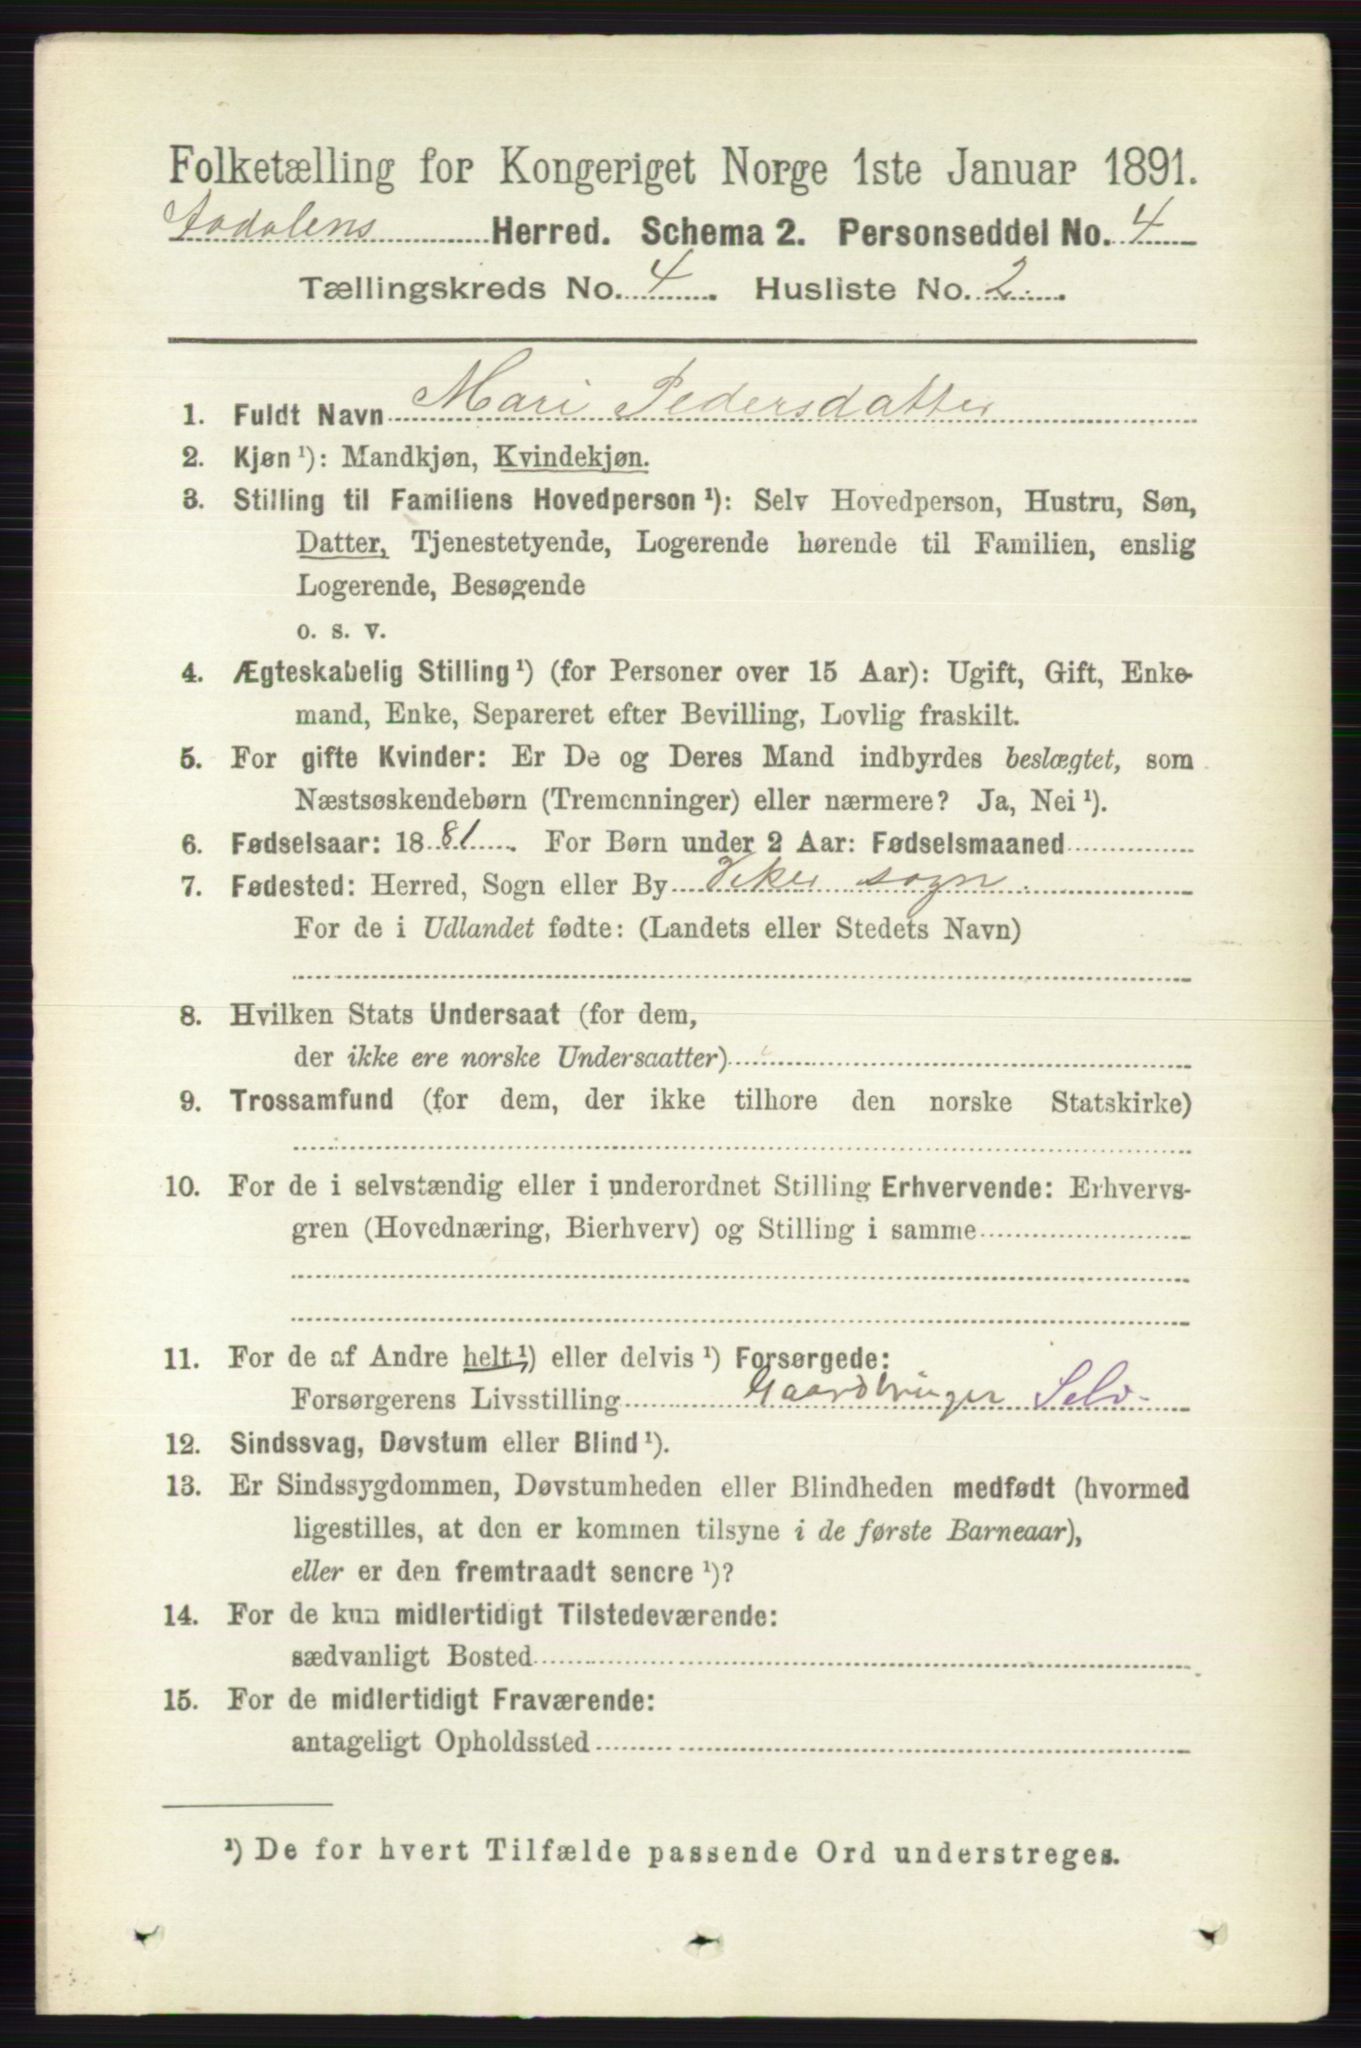 Folketælling for Kongeriget Norge 1ste Januar 1891.
Aadalens Herred. Schema 2. Personseddel No. 4
Tællingskreds No. 4. Husliste No. 2.
1. Fuldt Navn Mari Pedersdatter
2. Kjøn ¹): Mandkjøn, Kvindekjøn.
3. Stilling til Familiens Hovedperson ¹): Selv Hovedperson, Hustru, Søn,
Datter, Tjenestetyende, Logerende hørende til Familien, enslig
Logerende, Besøgende
o. s. v.
4. Ægteskabelig Stilling ¹) (for Personer over 15 Aar): Ugift, Gift, Enke-
mand, Enke, Separeret efter Bevilling, Lovlig fraskilt.
5. For gifte Kvinder: Er De og Deres Mand indbyrdes beslægtet, som
Næstsøskendebørn (Tremenninger) eller nærmere? Ja, Nei ¹).
6. Fødselsaar: 1881. For Børn under 2 Aar: Fødselsmaaned
7. Fødested: Herred, Sogn eller By Veker sogn
For de i Udlandet fødte: (Landets eller Stedets Navn)
8. Hvilken Stats Undersaat (for dem,
der ikke ere norske Undersaatter)
9. Trossamfund (for dem, der ikke tilhore den norske Statskirke)
10. For de i selvstændig eller i underordnet Stilling Erhvervende: Erhvervs-
gren (Hovednæring, Bierhverv) og Stilling i samme
11. For de af Andre helt ¹) eller delvis ¹) Forsørgede:
Forsørgerens Livsstilling Gaardbruger Selv-
12. Sindssvag, Døvstum eller Blind ¹).
13. Er Sindssygdommen, Døvstumheden eller Blindheden medfødt (hvormed
ligestilles, at den er kommen tilsyne i de første Barneaar),
eller er den fremtraadt senere ¹)?
14. For de kun midlertidigt Tilstedeværende:
sædvanligt Bosted
15. For de midlertidigt Fraværende:
antageligt Opholdssted
¹) De for hvert Tilfælde passende Ord understreges.